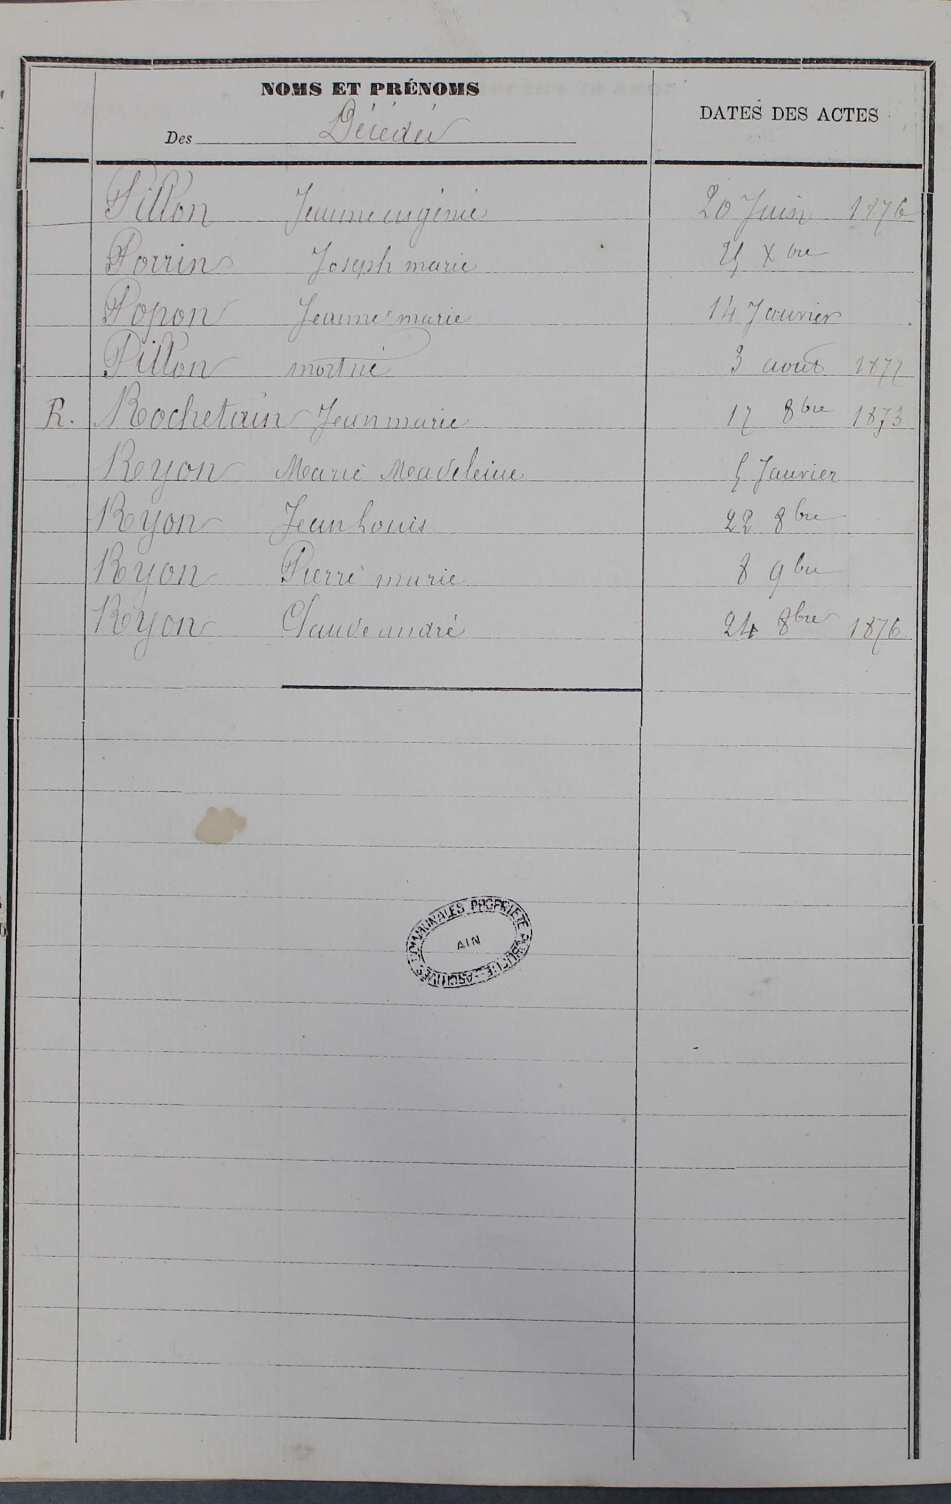 NOMS ET PRÉNOMS
Des Décédés
DATES DES ACTES
Pillon Jeanne eugénie 20 Juin 1876
Perrin Joseph marie 25 Xbre
Popon Jeanne marie 14 Janvier
Pillon mort né 3 août 1877
R. Rochetain Jean marie 17 8bre 1873
Reyon Marie Madeleine 5 Janvier
Reyon Jean Louis 22 8bre
Reyon Pierre marie 8 9bre
Reyon Claude andré 24 8bre 1876
ARCHIVES COMMUNALES PROPRIETE PUBLIQUE
AIN